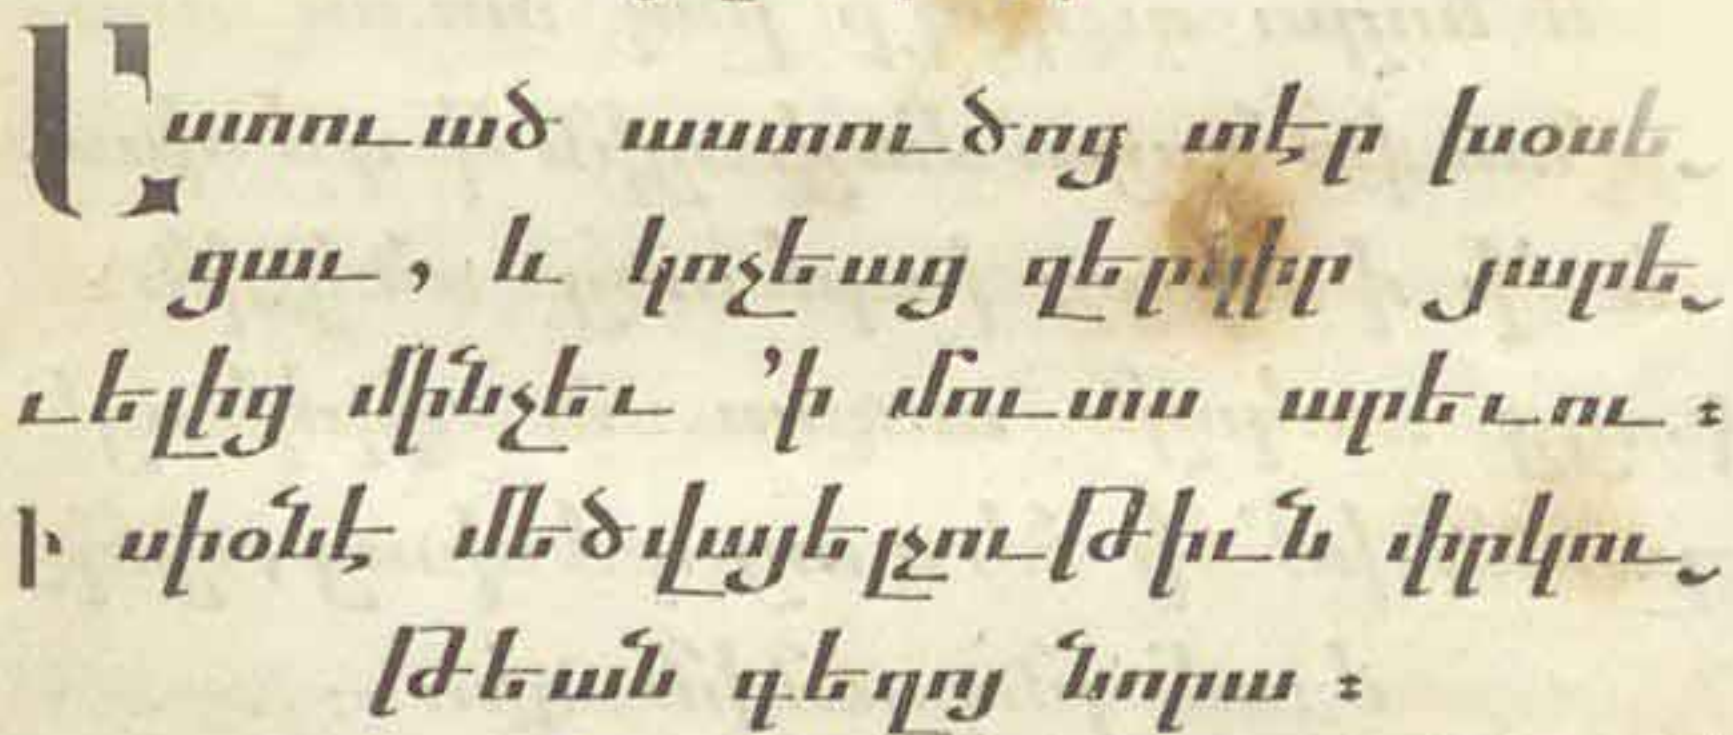 Աստուած աստուծոց տէր խօսե֊
ցաւ, և կոչեաց զերկիր յարե֊
ւելից մինչեւ ՚ի մուտս արեւու ։
Ի սիօնէ մեծվայելչութիւն փրկու֊
թեան գեղոյ նորա ։